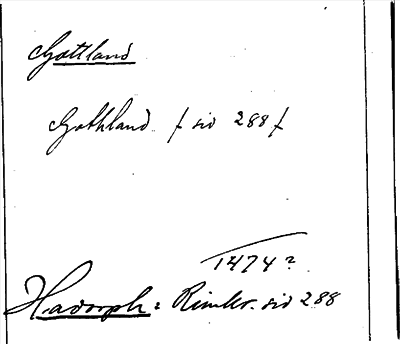 Gottland
Gothland / sid 288 /
1474?
Hadorph: Rimkr. sid 288